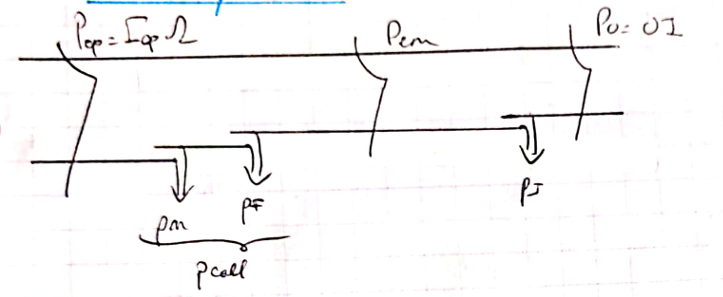 Pap = Iap Ω
Pem
Pu = UI
pm
pF
pJ
pcoll